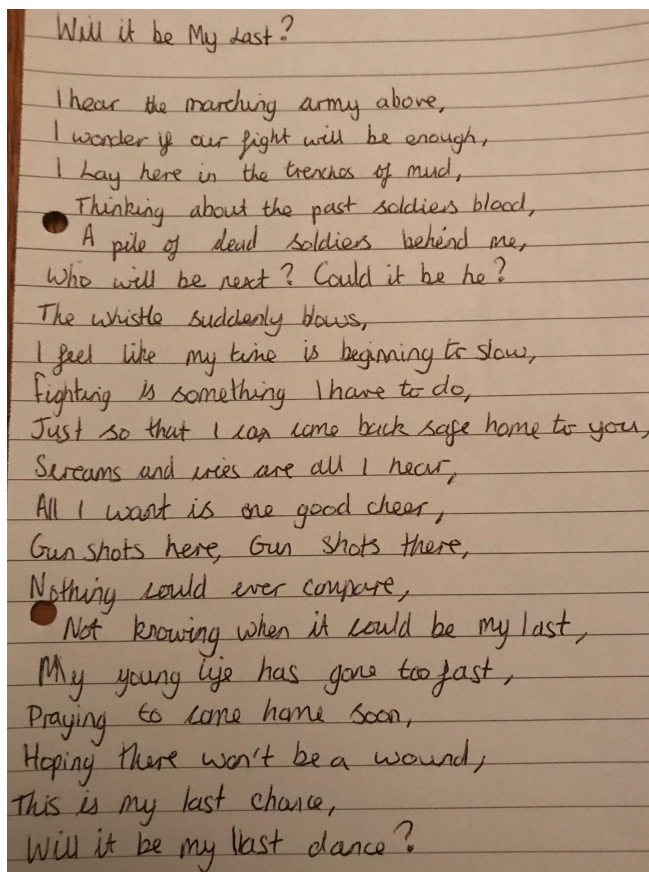 Will it be My Last?
I hear the marching army above,
I wonder if our fight will be enough,
I Lay here in the trenches of mud,
Thinking about the past soldiers blood,
A pile of dead soldiers behind me,
Who will be next? Could it be he?
The whistle suddenly blows,
I feel like my time is beginning to slow,
Fighting is something I have to do,
Just so that I can come back safe home to you,
Screams and cries are all I hear,
All I want is one good cheer,
Gun shots here, Gun shots there,
Nothing could ever compare,
Not knowing when it could be my last,
My young life has gone too fast,
Praying to come home soon,
Hoping there won't be a wound,
This is my last chance,
Will it be my last dance?